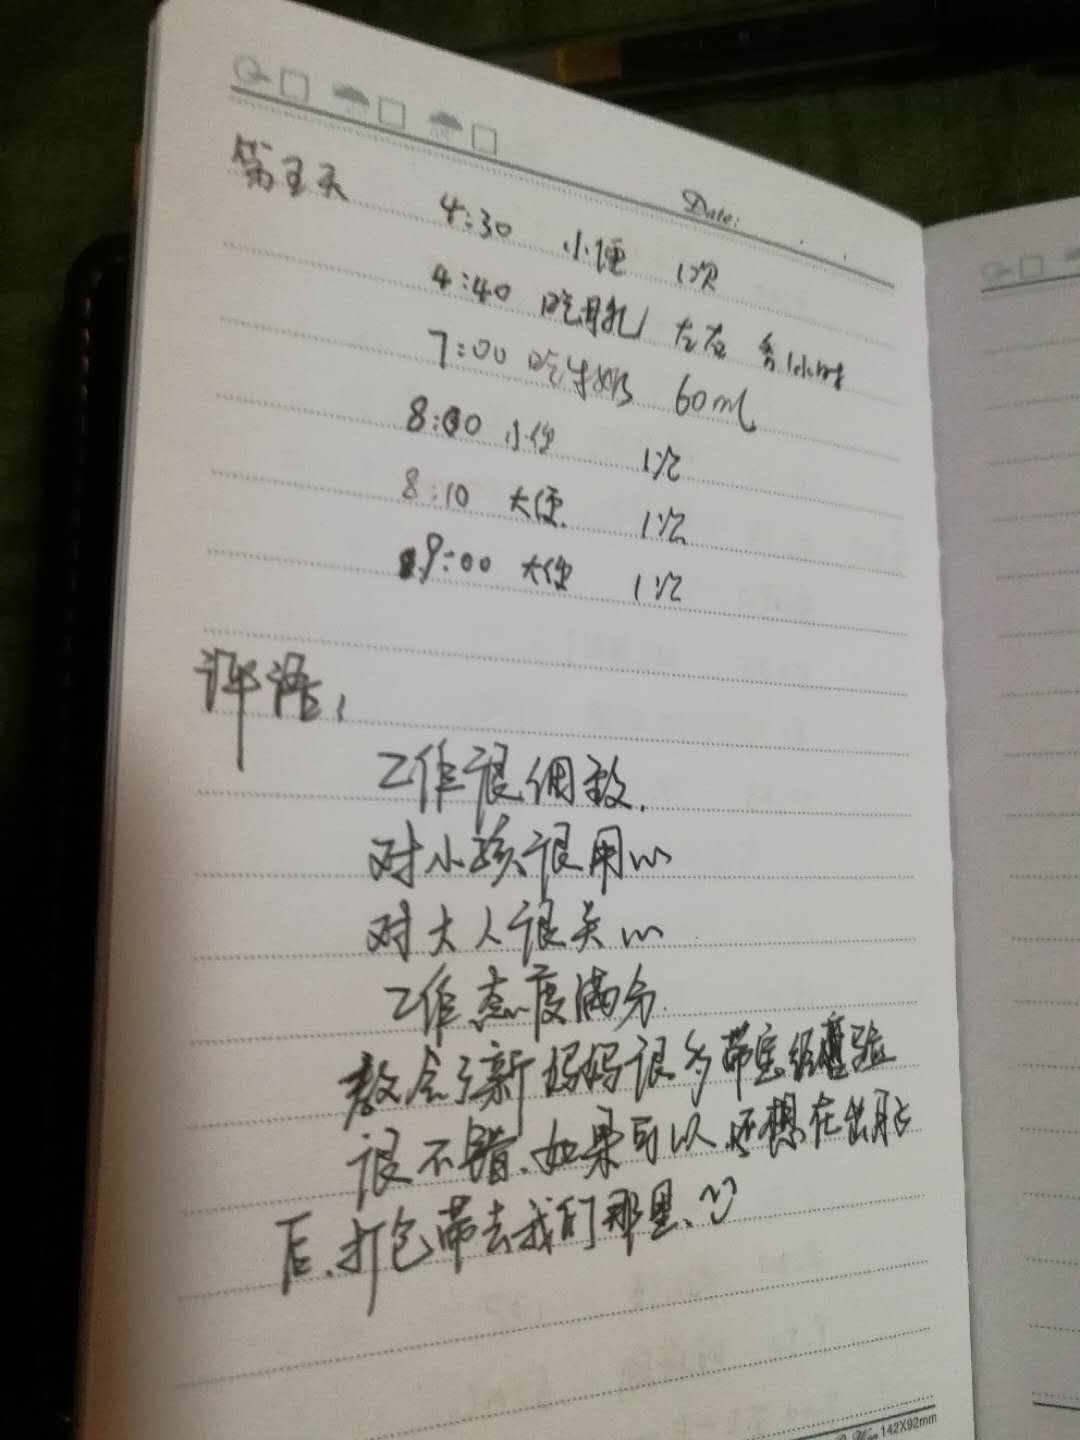 Date:
第五天 4:30 小便 1次
4:40 吃母乳 左右 各1小时
7:00 吃牛奶 60ml
8:00 小便 1次
8:10 大便 1次
9:00 大便 1次
评语:
工作很细致.
对小孩很用心
对大人很关心
工作态度满分.
教会了新妈妈很多带宝经验
很不错.如果可以,还想在出月
后.打包带去我们那里、
142X92mm